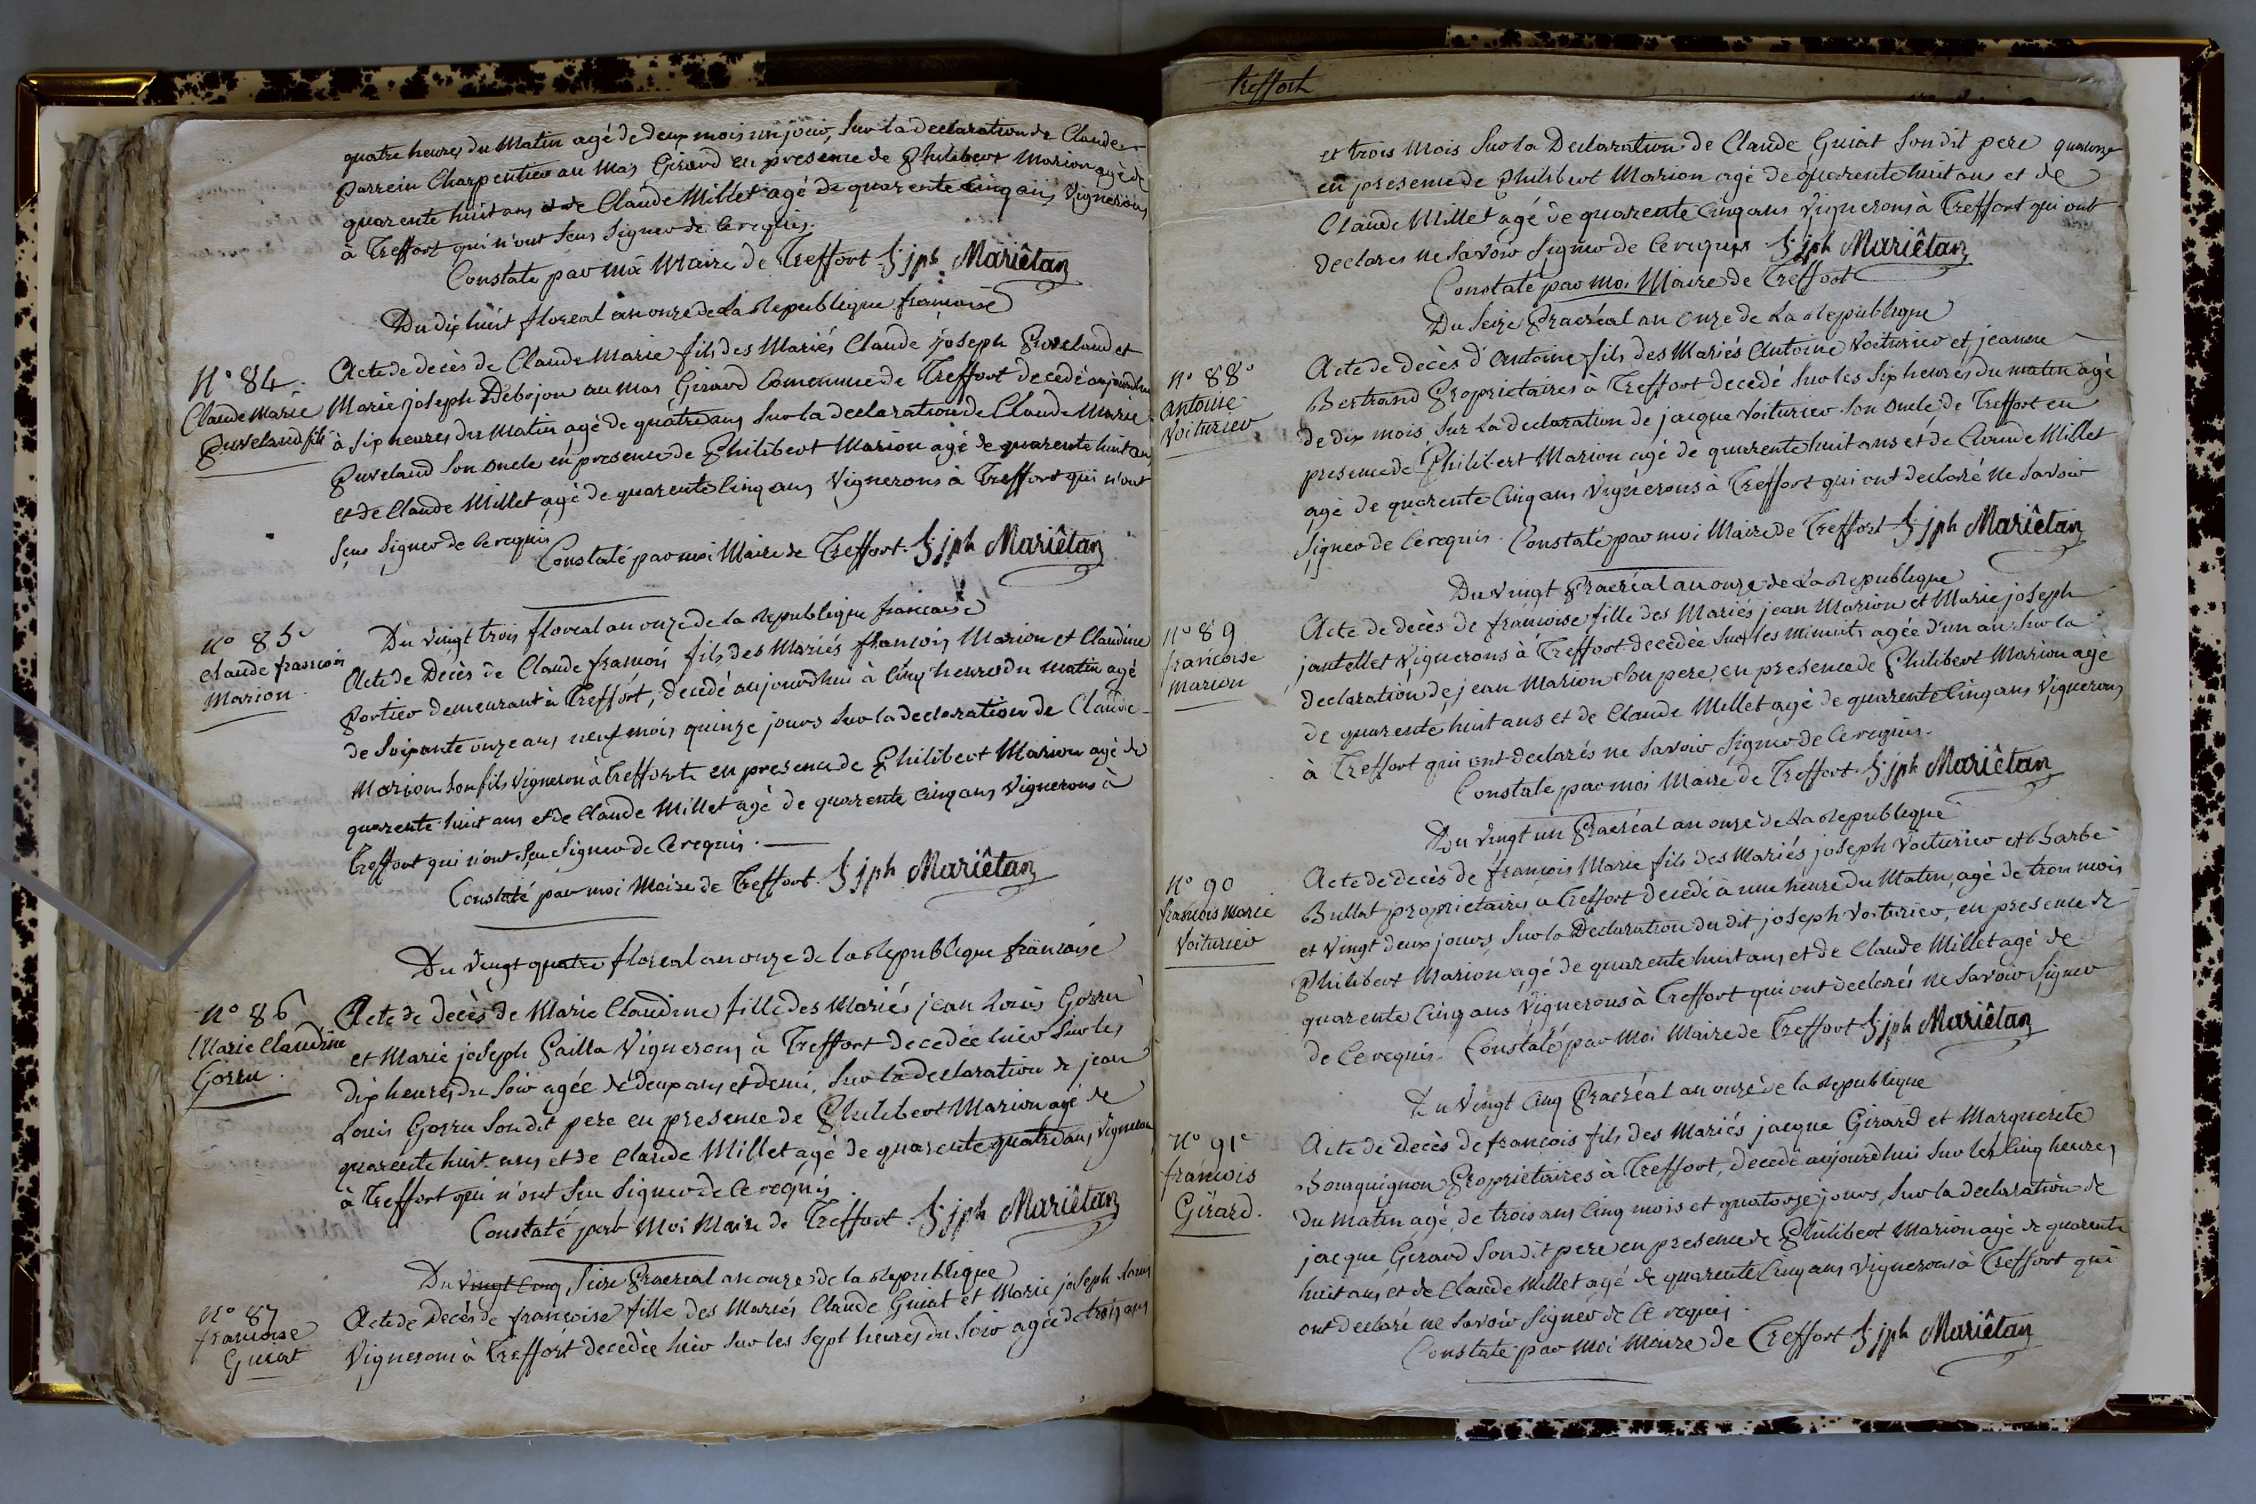 quatre heures du Matin agé de deux mois un jour, Sur la declaration de Claude
Parrein Charpentier au Mas Girard en presence de Philibert Marion agé de
quarente huit ans et de Claude Millet agé de quarente cinq ans Vignerons
à Treffort qui n'ont Seus Signer de ce requis.
Constaté par moi Maire de Treffort jph Mariêtan
Du dix huit floreal an onze de La Republique francaise
N° 84.
Claude Marie
Puveland fils
Acte de decès de Claude Marie fils des Mariés Claude joseph Puveland et
Marie joseph Debojon au mas Girard Commune de Treffort decedé aujourdhui
à six heures du Matin agé de quatre ans Sur la declaration de Claude Marie
Puveland Son oncle en presence de Philibert Marion agé de quarente huit ans
et de Claude Millet agé de quarente Cinq ans Vignerons à Treffort qui n'ont
seus Signer de ce requis
Constaté par moi Maire de Treffort. jph Mariêtan
Du vingt trois floreal an onze de la Republique francaise
N° 85
Claude francois
Marion.
Acte de Decès de Claude francois fils des Mariés francois Marion et Claudine
Portier demeurant à Treffort, decedé aujourdhui à Cinq heures du matin agé
de Soixante onze ans neuf mois quinze jours Sur la declaration de Claude
Marion Son fils Vigneron à Treffort en presence de Philibert Marion agé de
quarente huit ans et de Claude Millet agé de quarente cinq ans Vignerons à
Treffort qui n'ont Seu Signer de Ce requis.
Constaté par moi Maire de Treffort. jph Mariêtan
Du Vingt quatre floreal an onze de la Republique francaise
N° 86
Marie Claudine
Gorru.
Acte de decès de Marie Claudine fille des Mariés jean Louis Gorru
et Marie joseph Pailla Vignerons à Treffort decedée hier Sur les
dix heures du Soir agée de deux ans et demi, Sur la declaration de jean
Louis Gorru Son dit pere en presence de Philibert Marion agé de
quarente huit ans et de Claude Millet agé de quarente quatre ans Vignerons
à Treffort qui n'ont Seu Signer de Ce requis.
Constaté par Moi Maire de Treffort. jph Mariêtan
Du vingt cinq Seize Praerial an onze de la Republique
N° 87
francoise
Guiat
Acte de Decès de francoise fille des Mariés Claude Guiat et Marie joseph
Vignerons à Treffort decedée hier Sur les Sept heures du Soir agée de trois ans
treffort
et trois Mois Sur la Declaration de Claude Guiat Son dit pere quatorze
en presence de Philibert Marion agé de quarente huit ans et de
Claude Millet agé de quarente Cinq ans Vignerons à Treffort qui ont
declares ne Savoir Signer de Ce requis jph Mariêtan
Constaté par moi Maire de Treffort
Du Seize Praeréal an onze de La Republique
N° 88
antoine
Voiturier
Acte de decès d'Antoine fils des Mariés Antoine Voiturier et jeanne
Bertrand Proprietaires à Treffort decedé Sur les six heures du matin agé
de dix mois, Sur La declaration de jacque Voiturier Son Oncle de Treffort en
presence de Philibert Marion agé de quarente huit ans et de Claude Millet
agé de quarente Cinq ans Vignerons à Treffort qui ont declaré ne Savoir
Signer de Ce requis. Constaté par moi Maire de Treffort jph Mariêtan
Du vingt Praeréal an onze de La Republique
N° 89
francoise
marion
Acte de decès de francoise fille des Mariés jean Marion et Marie joseph
jantellet Vignerons à Treffort decedée Sur les minuits agée d'un an Sur la
declaration de jean Marion Son pere, en presence de Philibert Marion agé
de quarente huit ans et de Claude Millet agé de quarente Cinq ans Vignerons
à Treffort qui ont declarés ne Savoir Signer de Ce requis.
Constaté par moi Maire de Treffort jph Mariêtan
Du vingt un Praeréal an onze de La Republique
N° 90
francois marie
Voiturier
Acte de decès de francois Marie fils des Mariés joseph Voiturier et Barbe
Bullat proprietaires à Treffort decedé à une heure du Matin, agé de trois mois
et Vingt deux jours, Sur la Declaration du dit joseph Voiturier, en presence de
Philibert Marion agé de quarente huit ans, et de Claude Millet agé de
quarente Cinq ans Vignerons à Treffort qui ont declarés ne Savoir Signer
de Ce requis. Constaté par Moi Maire de Treffort jph Mariêtan
Du Vingt Cinq Praeréal an onze de la Republique
N° 91
francois
Girard.
Acte de Decès de francois fils des Mariés jacque Girard et Marguerite
Bourguignon Proprietaires à Treffort, decedé aujourdhui Sur les Cinq heures
du matin agé, de trois ans Cinq mois et quatorze jours, Sur la declaration de
jacque Girard Son dit pere en presence de Philibert Marion agé de quarente
huit ans et de Claude Millet agé de quarente Cinq ans Vignerons à Treffort qui
ont declaré ne Savoir Signer de Ce requis.
Constaté par Moi Maire de Treffort jph Mariêtan